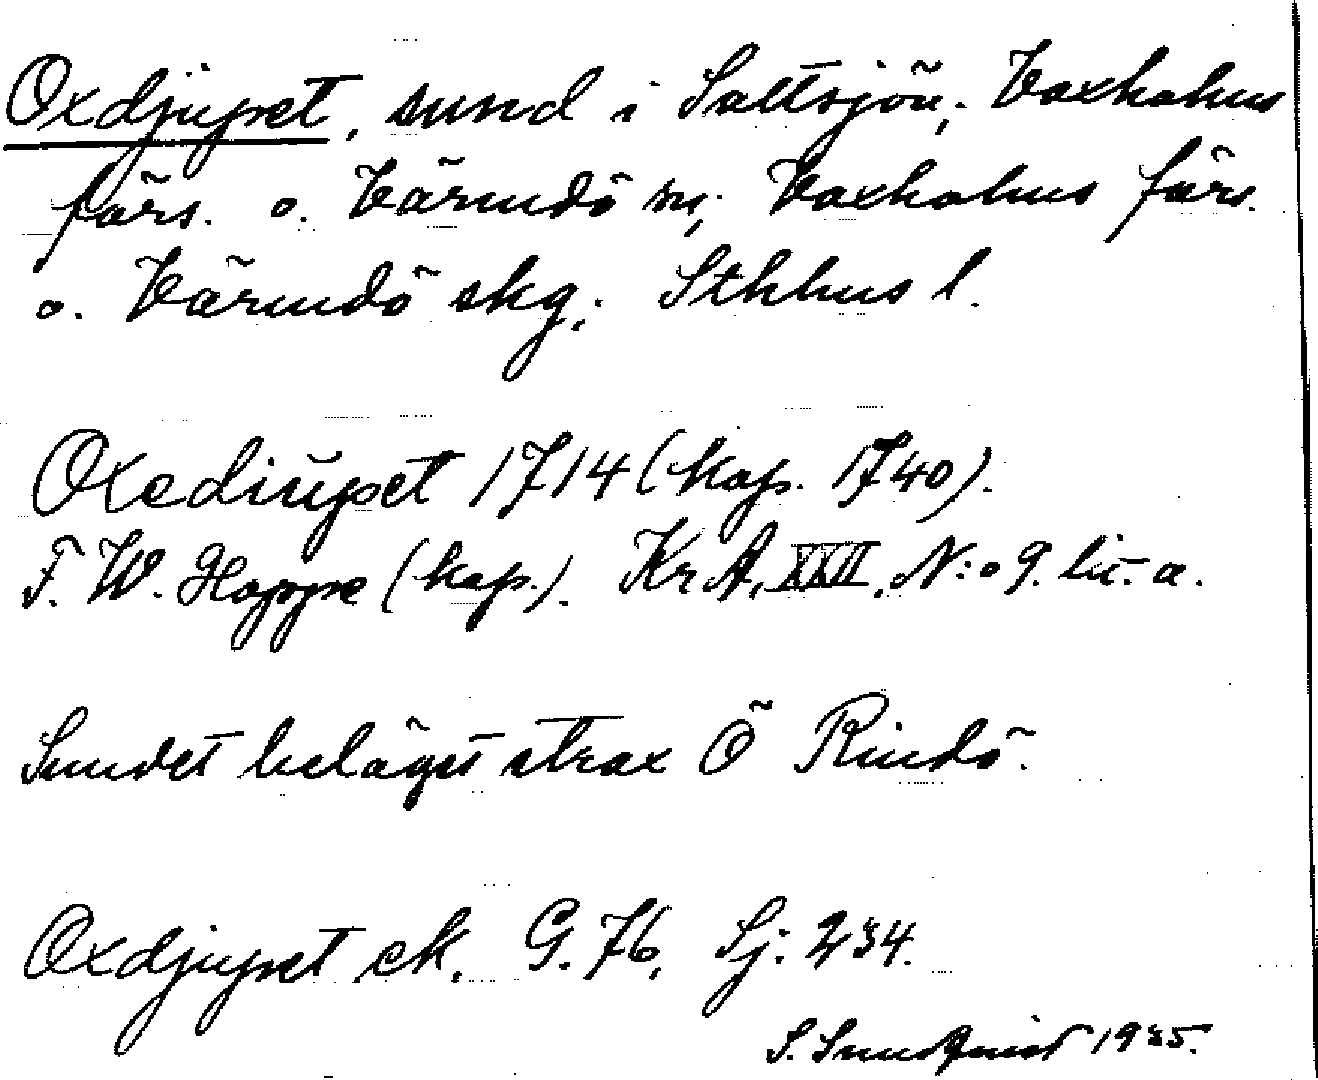 Oxdjupet, sund i Saltsjön, Vaxholms
förs. o. Värmdö sn; Vaxholms förs.
o. Värmdö skg, Sthlms l.
Oxediupet 1714 (kop. 1740).
F. W. Hoppe (kop.). KrA, XXII, N:o 9. lit. a.
Sundet beläget strax Ö Rindö.
Oxdjupet ek. G. 76, Sj: 234.
S. Sundqvist 1935.